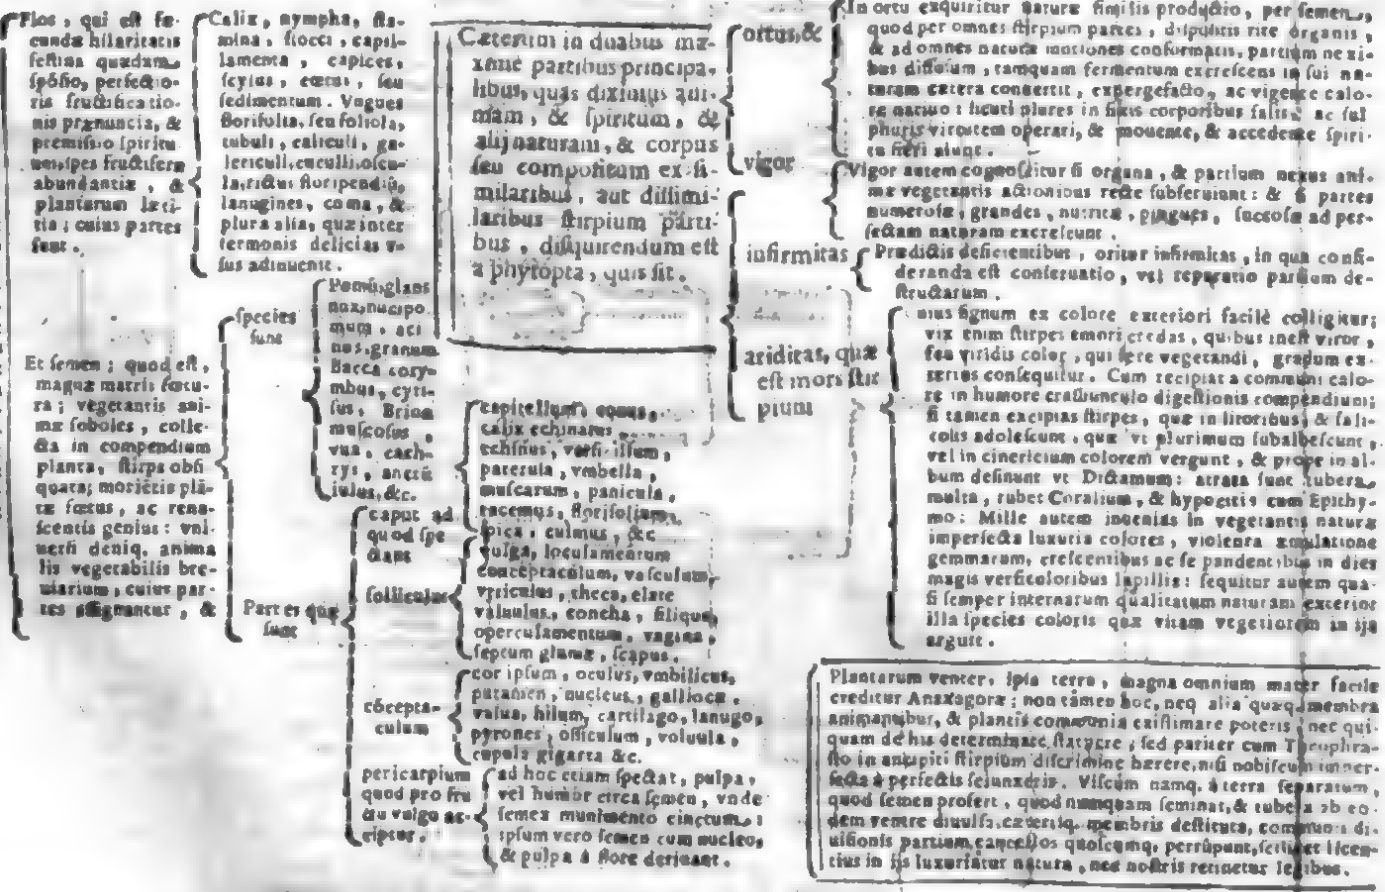 Flos, qui est fe-
cundæ hilaritatis
festina quædam
spōsio, perfectio-
ris fructificatio-
nis prænuncia, &
premissio spiritu
um, spes fructiferæ
abundantiæ, &
plantarum læti-
tia; cuius partes
sunt.
Calix, nympha, sta-
mina, flocci, capil-
lamenta, capices,
seu
sedimentum. Vngues
florifolia, seu foliola,
tubuli, caliculi, ga-
lericuli, cuculli, oscu-
la, rictus floripendiū,
lanugines, coma, &
plura alia, quæ inter
sermonis delicias v-
sus adinuenit.
Et semen; quod est,
magnæ matris fœtu-
ra; vegetantis ani-
mæ soboles, colle-
cta in compendium
planta, stirps obsi
quata; moriētis plā-
tæ fœtus, ac rena-
scentis genius: vni-
uersi deniq. anima
lis vegetabilis bre-
uiarium, cuius par-
tes assignantur, &
species
sunt
Pomū, glans
nux, nucipo
mum, aci
nus, granum
Bacca cory-
mbus, cyti-
sus, Brion
muscosus,
vua, cach-
rys,
iulus, &c.
Partes quæ
sunt
caput ad
quod spe
ctant
capitellum, conus,
calix echinatus
echinus,
paterula, vmbella,
muscarum, panicula,
racemus, florifolium,
spica, culmus, &c
folliculus
vulga, loculamentum
conceptaculum, vasculum,
vtriculus, theca, elate
valuulus, concha, siliqua,
operculamentum, vagina,
septum glumæ, scapus.
cōcepta-
culum
cor ipsum, oculus, vmbilicus,
putamen, nucleus, gallioca,
valua, hilum, cartilago, lanugo,
pyrones, ossiculum, voluula,
cupula gigarta &c.
pericarpium
quod pro fru
ctu vulgo ac-
cipitur.
ad hoc etiam spectat, pulpa,
vel humor circa semen, vnde
semen munimento cinctum:
ipsum vero semen cum nucleo,
& pulpa à flore deriuant.
Cæterum in duabus ma-
xime partibus principa-
libus, quas diximus ani-
mam, & spiritum, &
alij naturam, & corpus
seu compositum ex si-
milaribus, aut dissimi-
laribus stirpium parti-
bus, disquirendum est
a phytopta, quis sit.
ortus, &
In ortu exquiritur naturæ similis productio, per semen,
quod per omnes stirpium partes, dispositis rite organis,
& ad omnes naturæ motiones conformatis, partium nexi-
bus diffusum, tamquam fermentum excrescens in sui na-
turam cætera conuertit, expergefacto, ac vigente calo-
re natiuo: sicuti plures in fixis corporibus salis, ac sul
phuris virtutem operari, & mouente, & accedente spiri-
tu fieri aiunt.
vigor
Vigor autem cognoscitur si organa, & partium nexus ani-
mæ vegetantis actionibus recte subseruiant: & si partes
numerosæ, grandes, nutritæ, pingues, succosæ ad per-
fectam naturam excrescunt.
infirmitas
Prædictis deficientibus, oritur infirmitas, in qua consi-
deranda est conseruatio, vel reparatio partium de-
structarum.
ariditas, quæ
est mors stir
pium
uius signum ex colore exteriori facilè colligitur;
vix enim stirpes emori credas, quibus inest viror,
seu viridis color, qui fere vegetandi, gradum ex-
terius consequitur. Cum recipiat a communi calo-
re in humore crassiunculo digestionis compendium;
si tamen excipias stirpes, quæ in litoribus, & salі-
colis adolescunt, quæ vt plurimum subalbescunt,
vel in cinericium colorem vergunt, & prope in al-
bum desinunt vt Dictamum: atrata sunt tubera
multa, rubet Coralium, & hypocistis cum Epithy-
mo: Mille autem ingenias in vegetantis naturæ
imperfecta luxuria colores, violenta æmulatione
gemmarum, crescentibus ac se pandentibus in dies
magis versicoloribus lapillis: sequitur autem qua-
si semper internarum qualitatum naturam exterior
illa species coloris quæ vitam vegetiorem in ijs
arguit.
Plantarum venter, ipsa terra, magna omnium mater facile
creditur Anaxagoræ; non tamen hoc, neq. alia quæq. membra
animantibus, & plantis communia existimare poteris, nec qui-
quam de his determinate statuere; sed pariter cum Theophra-
sto in ancipiti stirpium discrimine hærere, nisi nobiscum imper-
fecta à perfectis seiunxeris. Viscum namq. à terra separatum,
quod semen profert, quod nunquam seminat, & tubera ab eo-
dem ventre diuulsa, cæterisq. membris destituta, communia di-
uisionis partium cancellos quoscumq. perrūpunt, scilicet licen-
tius in ijs luxuriatur natura, nec nostris retinetur legibus.